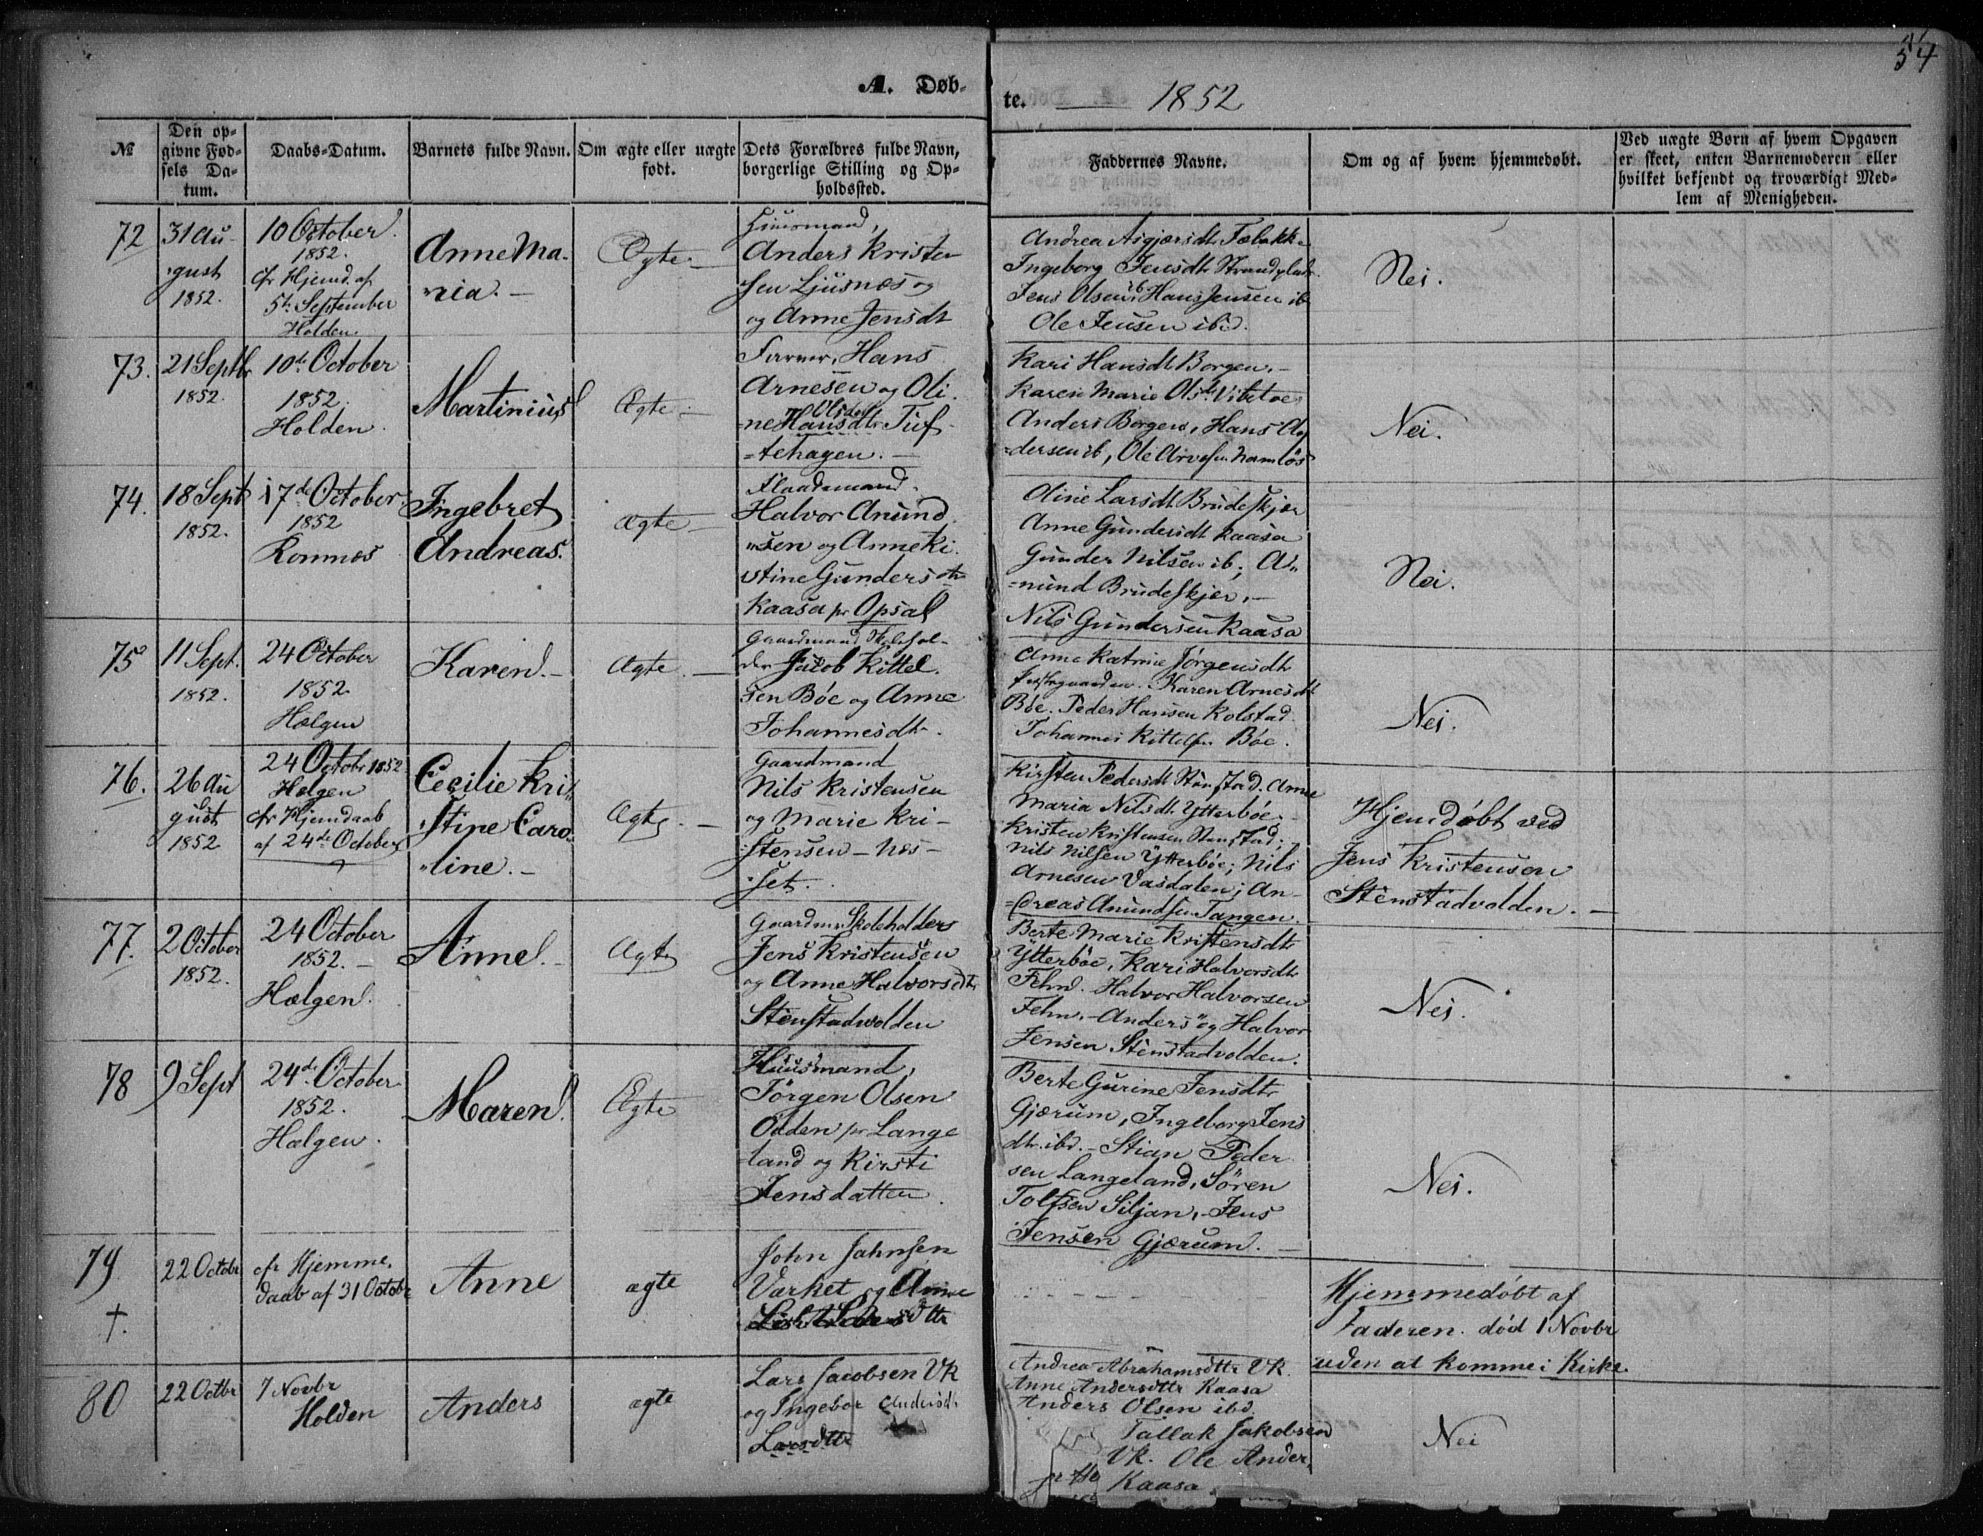 54
A. Døb-
te. 1852
№
Den op-
givne Fød-
sels Da-
tum.
Daabs-Datum.
Barnets fulde Navn.
Om ægte eller uægte
født.
Dets Forældres fulde Navn,
borgerlige Stilling og Op-
holdssted.
Faddernes Navne.
Om og af hvem hjemmedøbt.
Ved uægte Børn af hvem Opgaven
er skeet, enten Barnemoderen eller
hvilket bekjendt og troværdigt Med-
lem af Menigheden.
72
31 Au-
gust
1852.
10 October
1852.
cfr Hjemd. af
5te September
Holden
Anne Ma-
ria. -
Ægte. -
Huusmand,
Anders Kristen
sen Ljusnæs og
og Anne Jensdt
Andrea Asgjersdt
Ingeborg Jensdt
Jens Olsen ib, Hans Jensen ib
Ole Jensen ibd.
Nei.
73.
21 Septbr
1852.
10de October
1852.
Holden
Martinius
Ægte. -
Hans
Arnesen og Oli-
Olsdt
=ne Hansdtr Tuf-
=tehagen. -
Kari Hansdt Borgen. -
Karen Marie Olsdt Vibetoe
Anders Borgen, Hans An
=dersen ib, Ole Arvesen Namløs
Nei.
74.
18 Sept
1852.
17de October
1852
Romnæs
Ingebret
Andreas.
Ægte -
Plaadsmand.
Halvor Anund
sen og Anne Ki-
stine Gundersdtr
Kaasa pr Opsal
Oline Larsdt Brudeskjær
Anne Gundersdt Kaasa
Gunder Nilsen ib; A-
=nund Brudeskjer. -
Nils Gundersen Kaasa
Nei.
75
11 Sept.
1852.
24 October
1852.
Hælgen
Karen. -
Ægte. -
Gaardmand Skolehol-
der Jacob Kittel-
sen Bøe og Anne
Johannesdtr.
Anne Katrine Jørgensdt
Karen Arnesdt
Bøe. Peder Hansen Kolstad.
Johannes Kittelsen Bøe.
Nei.
76.
26 Au
gust
1852
24 Octobr 1852
Hælgen
cfr Hjemdaab
af 24de October
+
Cecilie Kri-
stine Caro
line. -
Ægte. -
Gaardmand
Nils Kristensen
og Marie Kri-
stensen - Næs-
set.
Kirsten Pedersdt Stenstad. Anne
Maria Nilsdt Ytterbøe.
Kristen Kristensen Stenstad;
Nils Nilsen Ytterbøe; Nils
Arnesen Vasdalen; An-
=dreas Anundsen Tangen.
Hjemdøbt ved
Jens Kristensen
Stenstadvolden. -
77.
2 October
1852.
24 October
1852. -
Hælgen.
Anne. -
Ægte
Gaardm. Skoleholder
Jens Kristensen
og Anne Halvorsdtr
Stenstadvolden
Berte Marie Kristensdt
Ytterbøe, Kari Halvorsdt
Fehn. Halvor Halvorsen
Fehn. - Anders og Halvor
Jensen Stenstadvolden.
Nei.
78
9 Sept
24de October
1852.
Hælgen.
Maren.
Ægte
Huusmand,
Jørgen Olsen
Odden pr Lange
land og Kirsti
Jensdatten.
Berte Gurine Jensdtr
Gjærum, Ingeborg Jens
dtr. ibd. - Stian Peder
sen Langeland, Sören
Tolfsen Siljan, - Jens
Jensen Gjærum. -
Nei.
79
+.
22 Octobr
cfr Hjemme.
daab af 31 Octobr
Anne
ægte
John Jahnsen
Værket og Anne
Hjemmedøbt af
Faderen. død 1 Novbr
uden at komme i Kirke.
80
22 Octbr
7 Novbr
Holden
Anders
ægte
Lars Jacobsen Vk
og Ingebor Andersdt
Larsdttr
Andrea Abrahamsdttr Vk.
Anne Andersdttr Kaasa
Anders Olsen ibd.
Tallak Jakobsen
Vk. Ole Ander,
Kaasa.
Nei